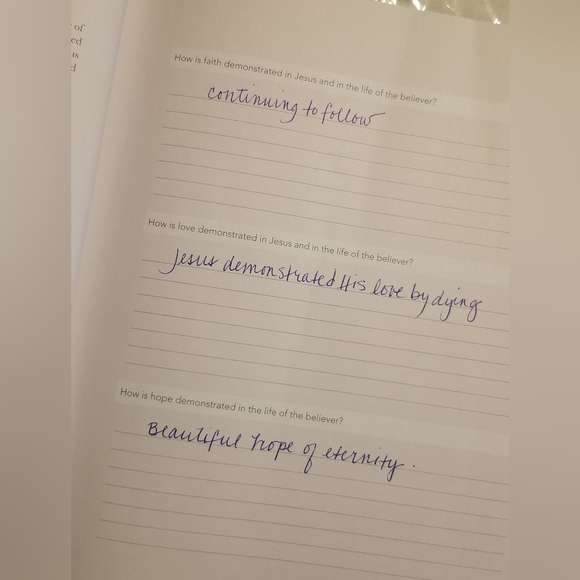 of
ed
is
d
How is faith demonstrated in Jesus and in the life of the believer?
continuing to follow
How is love demonstrated in Jesus and in the life of the believer?
Jesus demonstrated His love by dying
How is hope demonstrated in the life of the believer?
Beautiful hope of eternity.